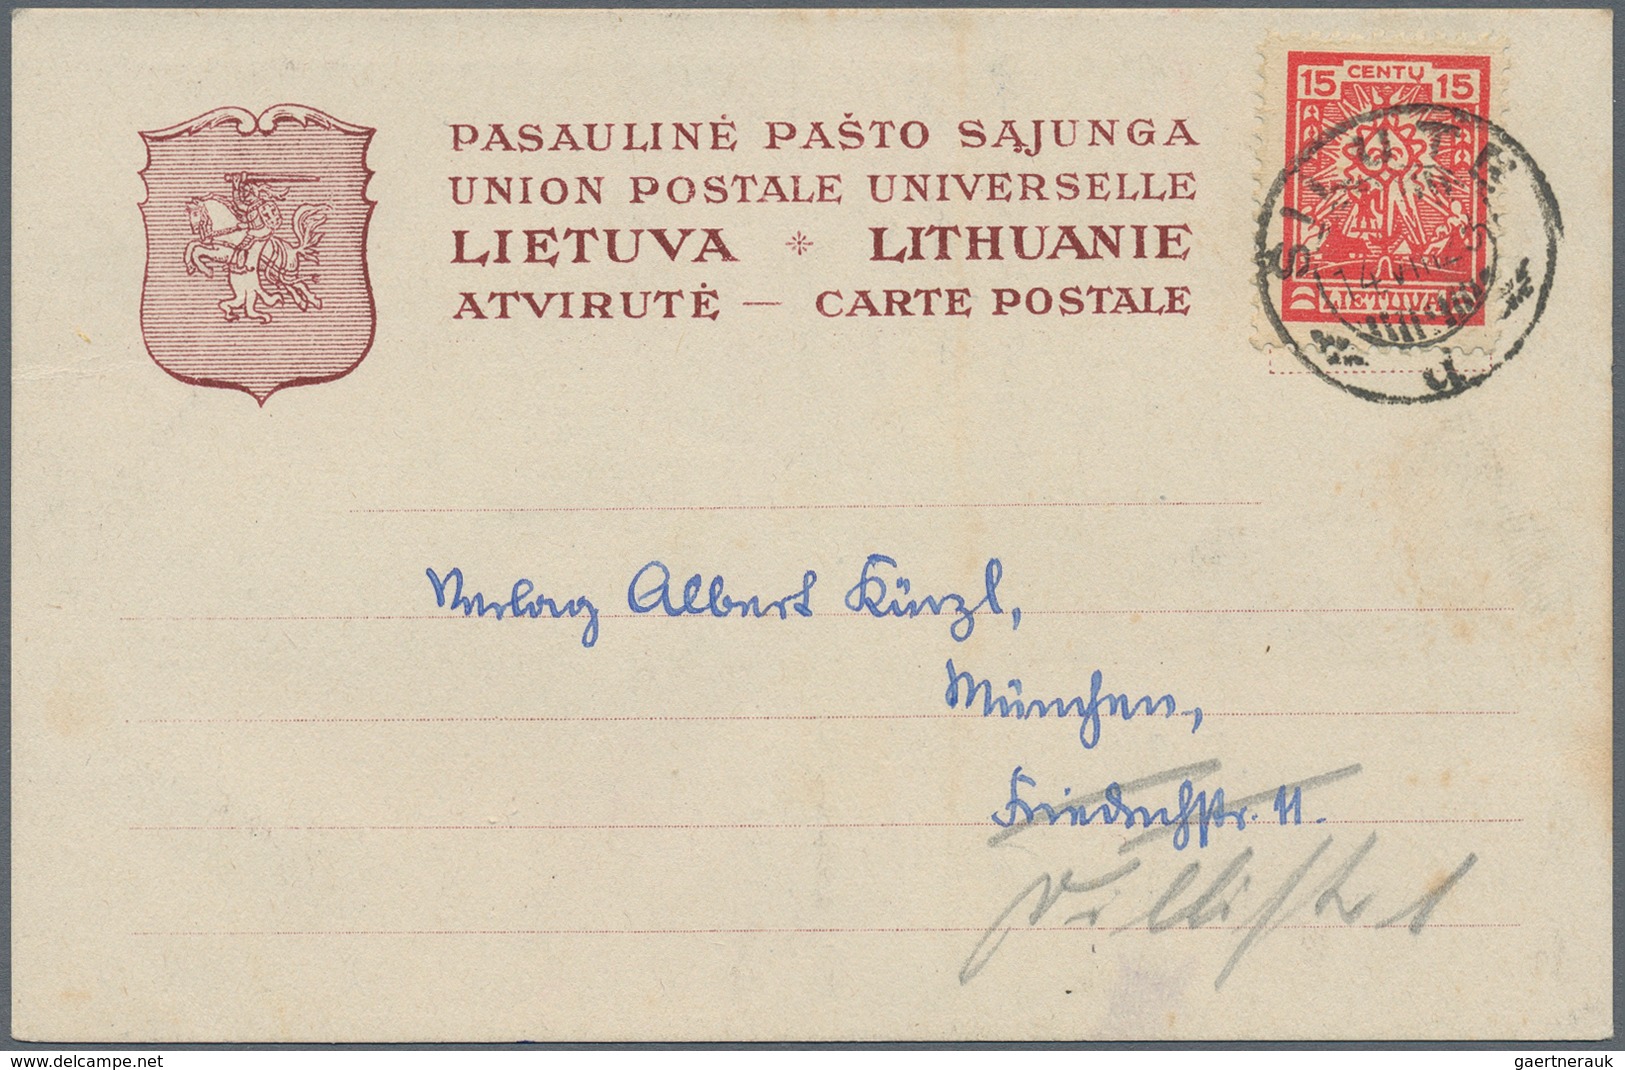 PASAULINĖ PAŠTO SĄJUNGA
UNION POSTALE UNIVERSELLE
LIETUVA * LITHUANIE
ATVIRUTĖ — CARTE POSTALE
15 CENTŲ 15
LIETUVA
ŠILUTĖ
14 VIII
Verlag Albert Kürzl,
München,
Friedrichstr. 11.
www.delcampe.net
gaertnerauk